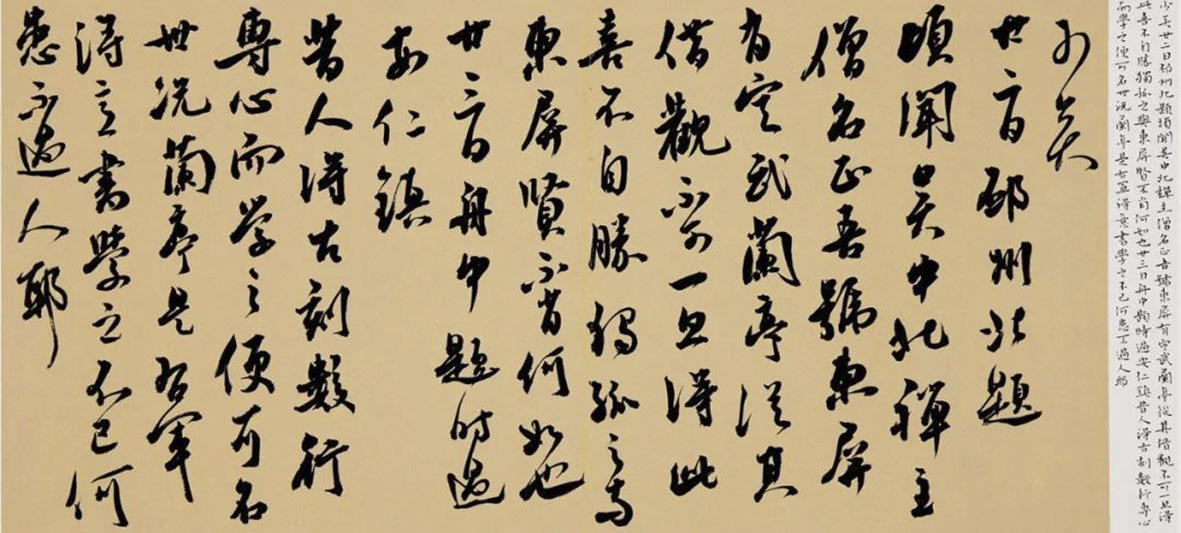 少矣廿二日邳州北題頃聞吳中北禪主僧名正吾號東屏有定武蘭亭從其借觀不可一旦得
此喜不自勝獨孤之與東屏賢不肖何如也廿三日舟中題時過安仁鎮昔人得古刻數行專心
而學之便可名世況蘭亭是右軍得意書學之不已何患不過人耶
少矣
廿二日邳州北題
頃聞吳中北禪主
僧名正吾號東屏
有定武蘭亭從其
借觀不可一旦得此
喜不自勝獨孤之与
東屏賢不肖何如也
廿三日舟中題時過
安仁鎮
昔人得古刻數行
專心而學之便可名
世況蘭亭是右軍
得意書學之不已何
患不過人耶